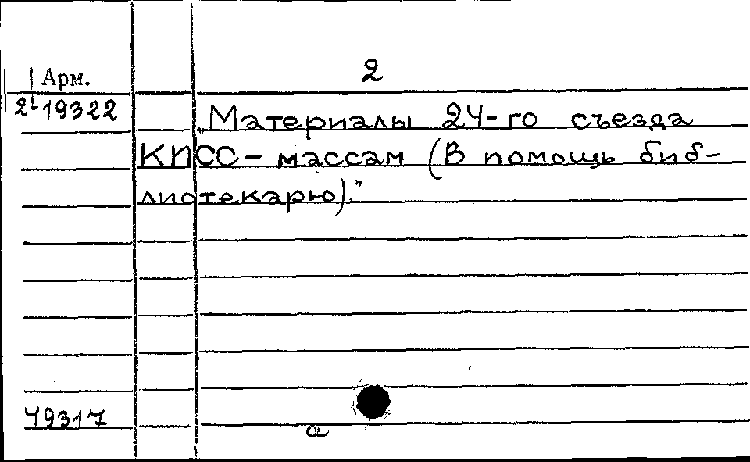 2
Арм.
19322
„Материалы 24-го съезда
КПСС - массам (В помощь биб-
лиотекарю)."
49317
а